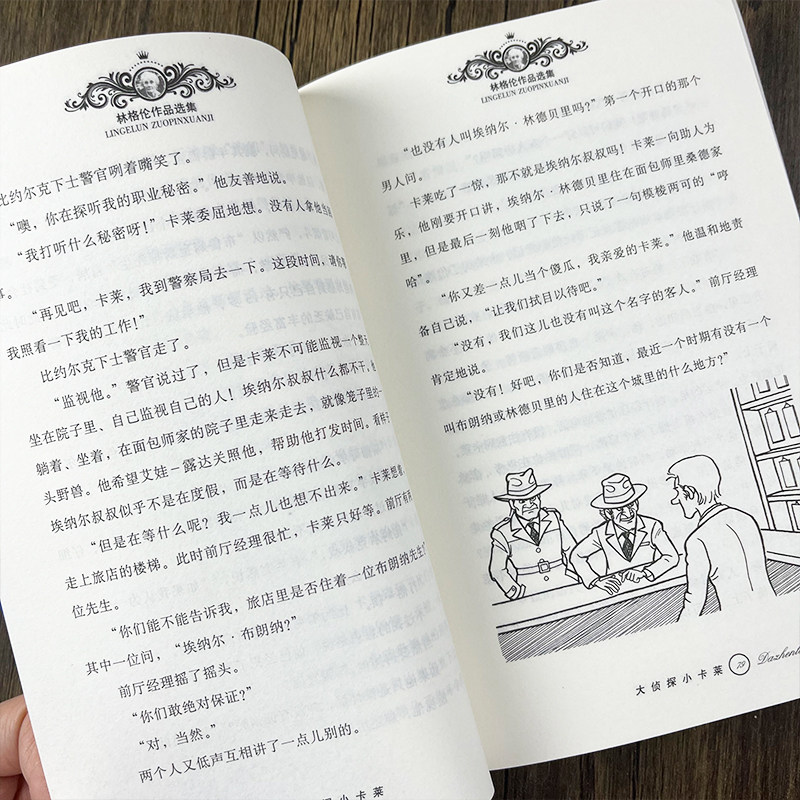 林格伦作品选集
LINGELUN ZUOPINXUANJI
比约尔克下士警官咧着嘴笑了。
“噢，你在探听我的职业秘密。”他友善地说。
“我打听什么秘密呀！”卡莱委屈地想。没有人拿他当
事。
“再见吧，卡莱，我到警察局去一下。这段时间，请你
我照看一下我的工作！”
比约尔克下士警官走了。
“监视他。”警官说过了，但是卡莱不可能监视一个整天
坐在院子里、自己监视自己的人！埃纳尔叔叔什么都不干，他
躺着、坐着，在面包师家的院子里走来走去，就像笼子里的一
头野兽。他希望艾娃－露达关照他，帮助他打发时间。看样子
埃纳尔叔叔似乎不是在度假，而是在等待什么。
“但是在等什么呢？我一点儿也想不出来。”卡莱想着，
走上旅店的楼梯。此时前厅经理很忙，卡莱只好等。前厅有两
位先生。
“你们能不能告诉我，旅店里是否住着一位布朗纳先生？”
其中一位问，“埃纳尔·布朗纳？”
前厅经理摇了摇头。
“你们敢绝对保证？”
“对，当然。”
两个人又低声互相讲了一点儿别的。
探小卡莱
林格伦作品选集
LINGELUN ZUOPINXUANJI
“也没有人叫埃纳尔·林德贝里吗？”第一个开口的那个
男人问。
卡莱吃了一惊，那不就是埃纳尔叔叔吗！卡莱一向助人为
乐，他刚要开口讲，埃纳尔·林德贝里住在面包师里桑德家
里，但是最后一刻他咽了下去，只说了一句模棱两可的“哼
哈”。
“你又差一点儿当个傻瓜，我亲爱的卡莱。”他温和地责
备自己说，“让我们拭目以待吧。”
“没有，我们这儿也没有叫这个名字的客人。”前厅经理
肯定地说。
“没有！好吧，你们是否知道，最近一个时期有没有一个
叫布朗纳或林德贝里的人住在这个城里的什么地方？”
大侦探小卡莱 79 Dazhent